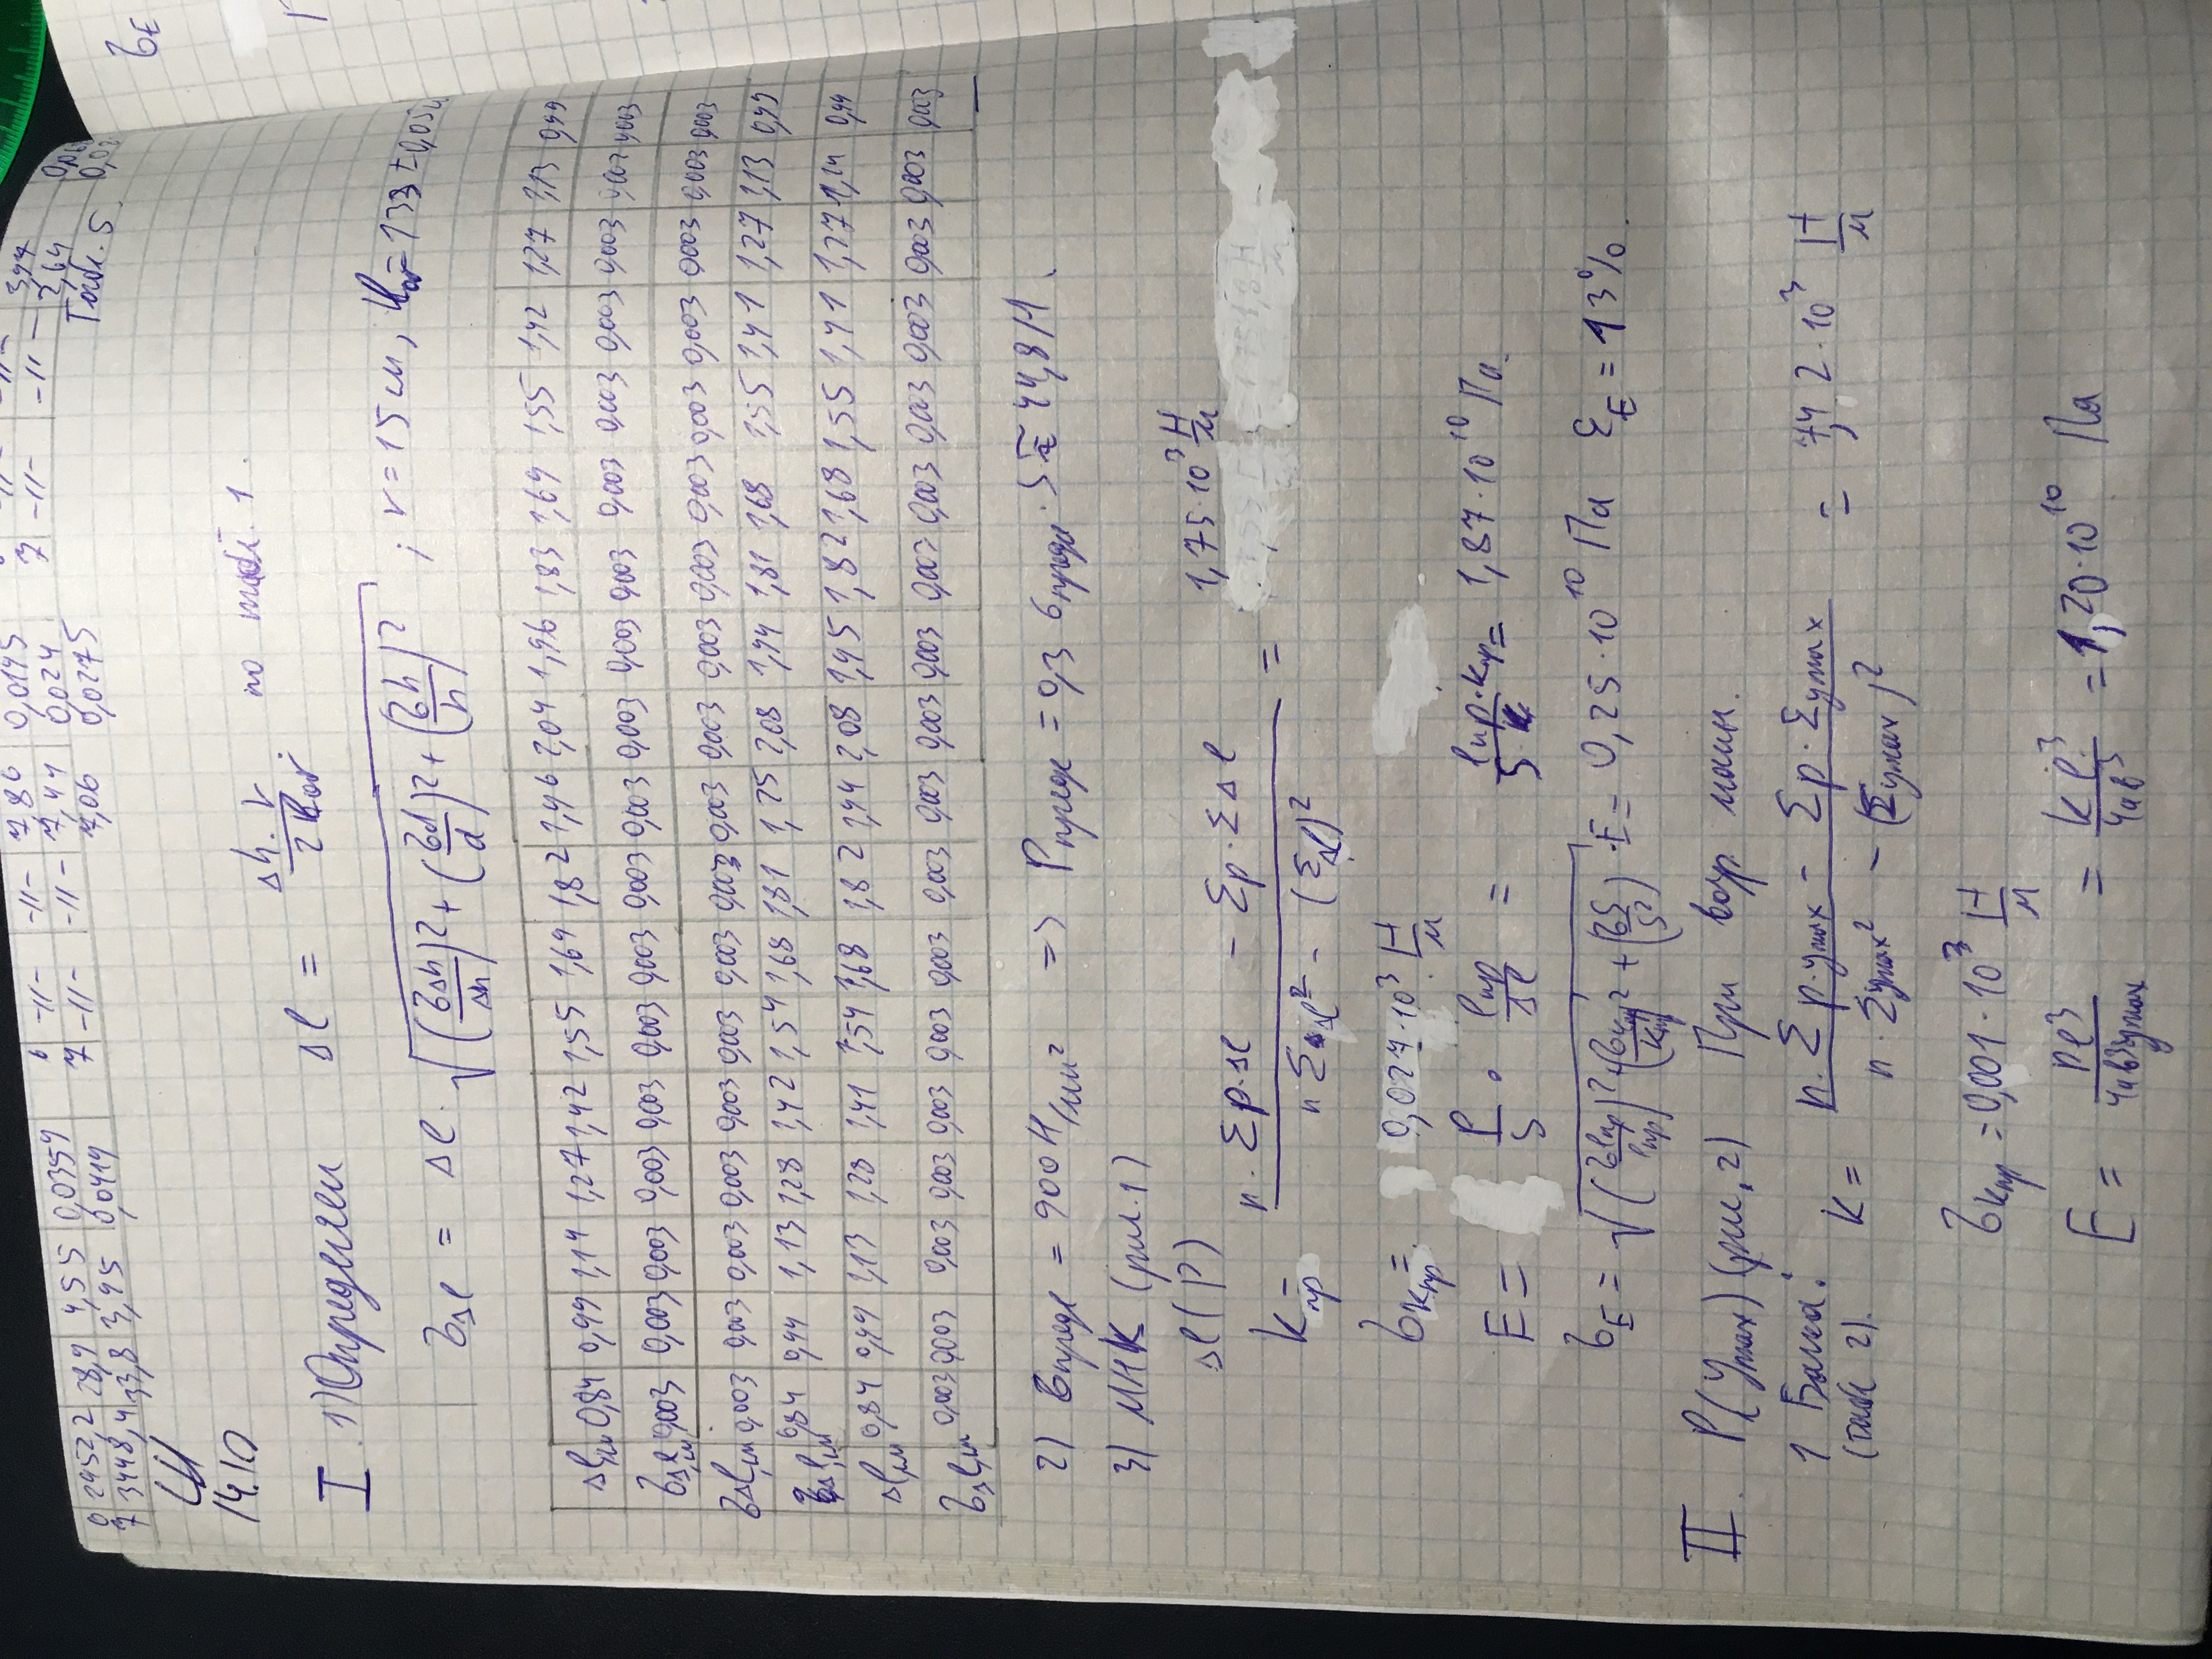 6 2952,2 28,9 4,55 0,0359 6 -11- -11- 7,86 0,0195 -11- -11- 3,97
7 3448,4 33,8 3,95 0,0419 7 -11- -11- 7,41 0,024 7 -11- -11- 3,64
7,06 0,0275 Табл. 5
14.10
I. 1) Определяем Δl = Δh·r / 2hог. по табл. 1.
σΔl = Δl·√((σΔh/Δh)² + (σd/d)² + (σh/h)²) ; r = 15 см, hог = 133 ± 0,05
Δl, см 0,84 0,99 1,14 1,27 1,42 1,55 1,69 1,82 1,96 2,04 1,96 1,83 1,69 1,55 1,42 1,27 1,13 0,99
σΔl, см 0,003 0,003 0,003 0,003 0,003 0,003 0,003 0,003 0,003 0,003 0,003 0,003 0,003 0,003 0,003 0,003 0,003 0,003
σΔl, см 0,003 0,003 0,003 0,003 0,003 0,003 0,003 0,003 0,003 0,003 0,003 0,003 0,003 0,003 0,003 0,003 0,003 0,003
Δl, см 0,84 0,99 1,13 1,28 1,42 1,54 1,68 1,81 1,95 2,08 1,94 1,81 1,68 1,55 1,41 1,27 1,13 0,99
Δl, см 0,84 0,99 1,13 1,28 1,41 1,54 1,68 1,82 1,94 2,08 1,95 1,82 1,68 1,55 1,41 1,27 1,14 0,99
σΔl, см 0,003 0,003 0,003 0,003 0,003 0,003 0,003 0,003 0,003 0,003 0,003 0,003 0,003 0,003 0,003 0,003 0,003 0,003
2) σпред = 900 Н/мм² => Pпред = 0,3 σпред · S ≈ 44,8 Н.
3) МНК (рис. 1)
Δl(P)
kпр = (n·Σp·Δl − Σp·ΣΔl) / (nΣΔl² − (ΣΔl)²) = 1,75·10³ Н/м
σkпр = 0,027·10³ Н/м
E = P/S · lпр/Δl = lпр·kпр/S = 1,87·10¹⁰ Па.
σE = √((σlпр/lпр)² + (σkпр/kпр)² + (σS/S²)) ·E = 0,25·10¹⁰ Па εE = 13%.
II. P(ymax) (рис. 2) При возр. маш.
1 Балка:
(табл 2).
k = (n·Σp·ymax − Σp·Σymax) / (n·Σymax² − (Σymax)²) = 7,42·10³ Н/м
σkпр = 0,001·10³ Н/м
E = Pl³/4ab³ymax = kl³/4ab³ = 1,20·10¹⁰ Па
σE